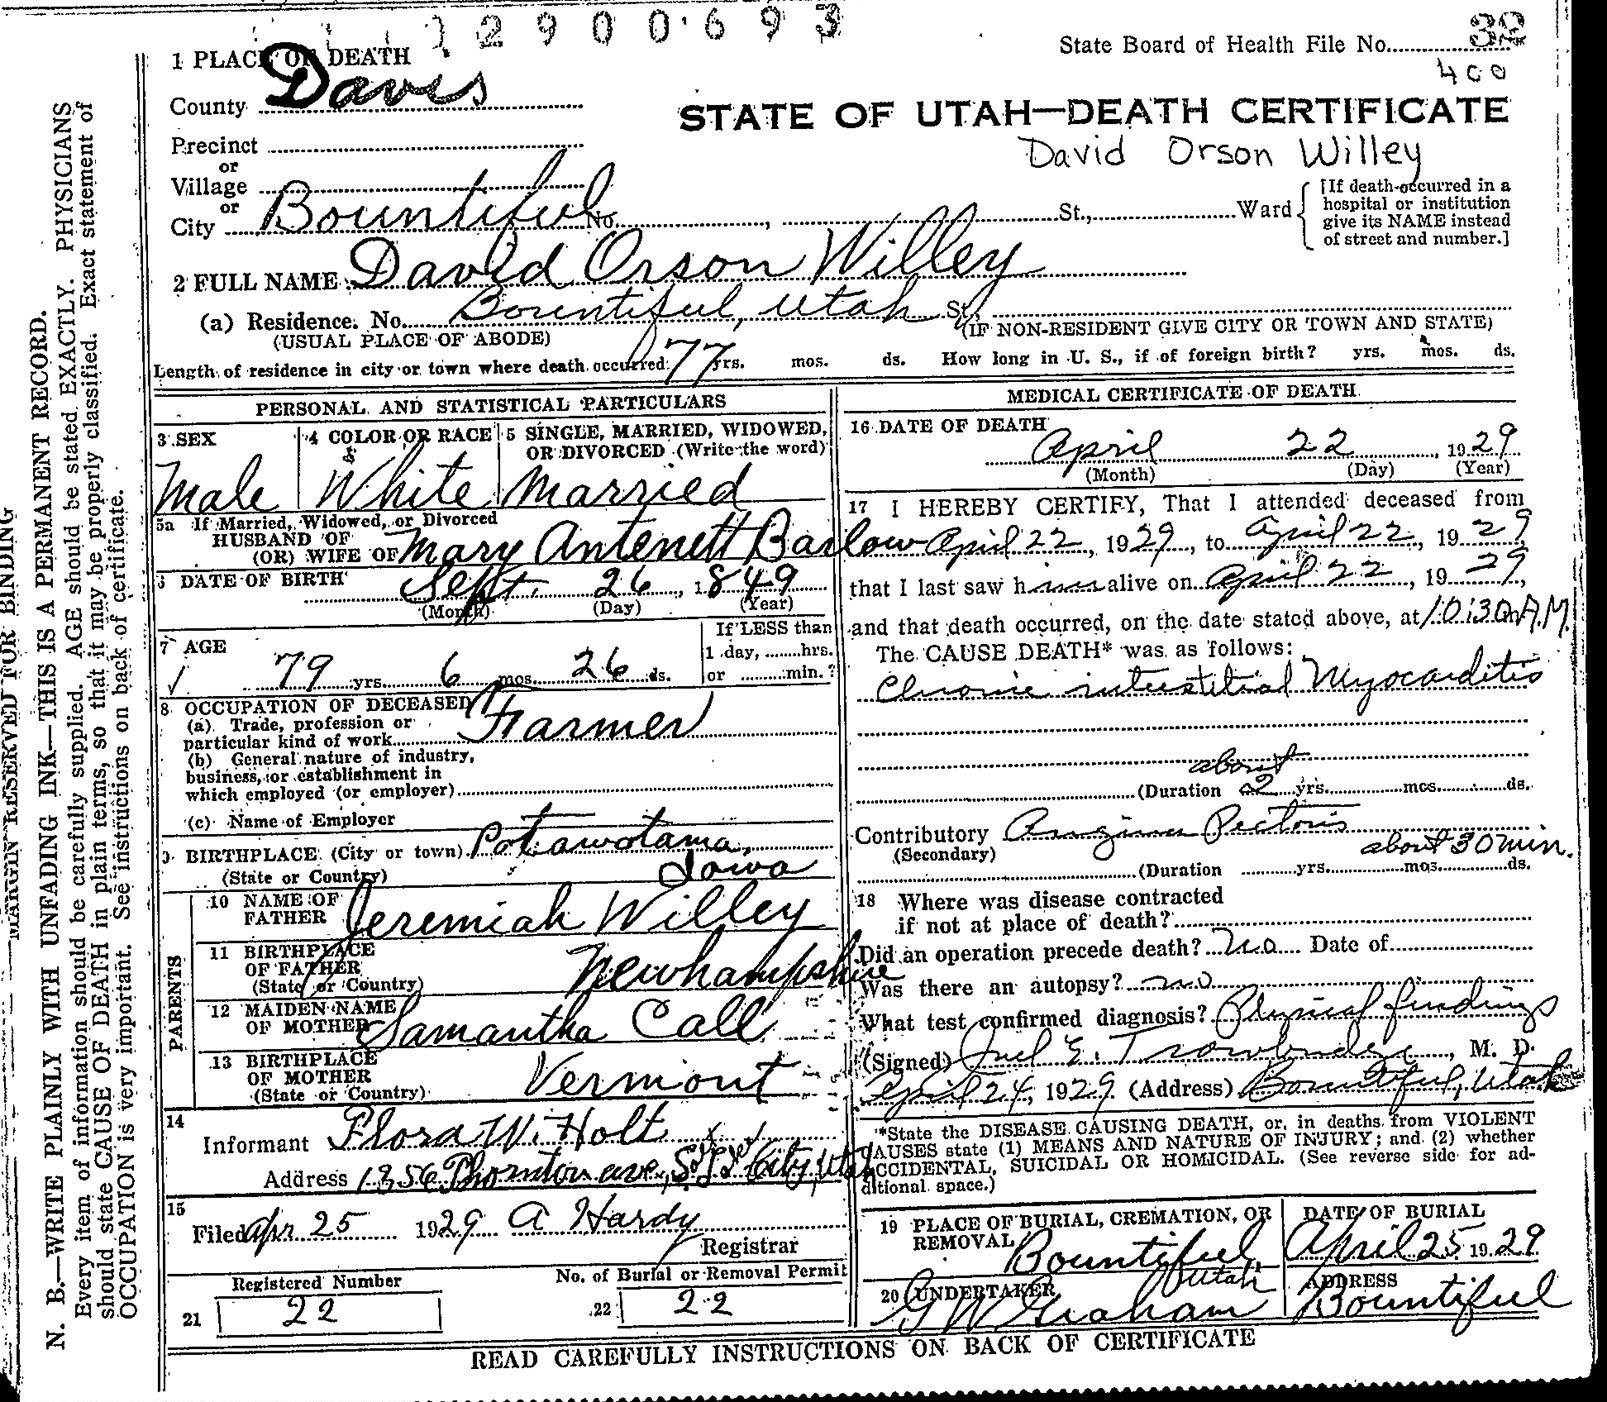 2900693
State Board of Health File No. 32
400
1 PLACE OF DEATH
County Davis
STATE OF UTAH—DEATH CERTIFICATE
David Orson Willey
Precinct
or
Village
or
City Bountiful No. , St., Ward
[If death occurred in a
hospital or institution
give its NAME instead
of street and number.]
2 FULL NAME David Orson Willey
(a) Residence. No. Bountiful, Utah St.,
(USUAL PLACE OF ABODE) (IF NON-RESIDENT GIVE CITY OR TOWN AND STATE)
Length of residence in city or town where death occurred 77 yrs. mos. ds. How long in U. S., if of foreign birth? yrs. mos. ds.
PERSONAL AND STATISTICAL PARTICULARS
3 SEX
Male
4 COLOR OR RACE
White
5 SINGLE, MARRIED, WIDOWED,
OR DIVORCED (Write the word)
Married
5a If Married, Widowed, or Divorced
HUSBAND OF
(OR) WIFE OF Mary Antenett Barlow
6 DATE OF BIRTH
Sept. 26, 1849
(Month) (Day) (Year)
7 AGE
79 yrs. 6 mos. 26 ds.
If LESS than
1 day, hrs.
or min.?
8 OCCUPATION OF DECEASED
(a) Trade, profession or
particular kind of work Farmer
(b) General nature of industry,
business, or establishment in
which employed (or employer)
(c) Name of Employer
9 BIRTHPLACE (City or town) Potawotama,
(State or Country) Iowa
PARENTS
10 NAME OF
FATHER Jeremiah Willey
11 BIRTHPLACE
OF FATHER
(State or Country) Newhampshire
12 MAIDEN NAME
OF MOTHER Samantha Call
13 BIRTHPLACE
OF MOTHER
(State or Country) Vermont
14
Informant Flora W. Holt
Address 1356 Thornton ave, S. L. City, Utah
15
Filed Apr 25 1929 A Hardy
Registrar
Registered Number
21 22
No. of Burial or Removal Permit
22 22
MEDICAL CERTIFICATE OF DEATH
16 DATE OF DEATH
April 22, 1929
(Month) (Day) (Year)
17 I HEREBY CERTIFY, That I attended deceased from
April 22, 1929, to April 22, 1929
that I last saw him alive on April 22, 1929,
and that death occurred, on the date stated above, at 10:30 m A.M.
The CAUSE DEATH* was as follows:
Chronic interstitial Myocarditis
about
(Duration 2 yrs. mos. ds.
Contributory Angina Pectoris
(Secondary) about 30 min.
(Duration yrs. mos. ds.
18 Where was disease contracted
if not at place of death?
Did an operation precede death? no Date of
Was there an autopsy? no
What test confirmed diagnosis? Physical findings
(Signed) E. Trowbridge, M. D.
April 24, 1929 (Address) Bountiful, Utah
*State the DISEASE CAUSING DEATH, or, in deaths from VIOLENT
CAUSES state (1) MEANS AND NATURE OF INJURY; and (2) whether
ACCIDENTAL, SUICIDAL OR HOMICIDAL. (See reverse side for ad-
ditional space.)
19 PLACE OF BURIAL, CREMATION, OR
REMOVAL Bountiful
Utah
DATE OF BURIAL
April 25 1929
20 UNDERTAKER
G W Graham
ADDRESS
Bountiful
READ CAREFULLY INSTRUCTIONS ON BACK OF CERTIFICATE
MARGIN RESERVED FOR BINDING
N. B.—WRITE PLAINLY WITH UNFADING INK—THIS IS A PERMANENT RECORD.
Every item of information should be carefully supplied. AGE should be stated EXACTLY. PHYSICIANS
should state CAUSE OF DEATH in plain terms, so that it may be properly classified. Exact statement of
OCCUPATION is very important. See instructions on back of certificate.